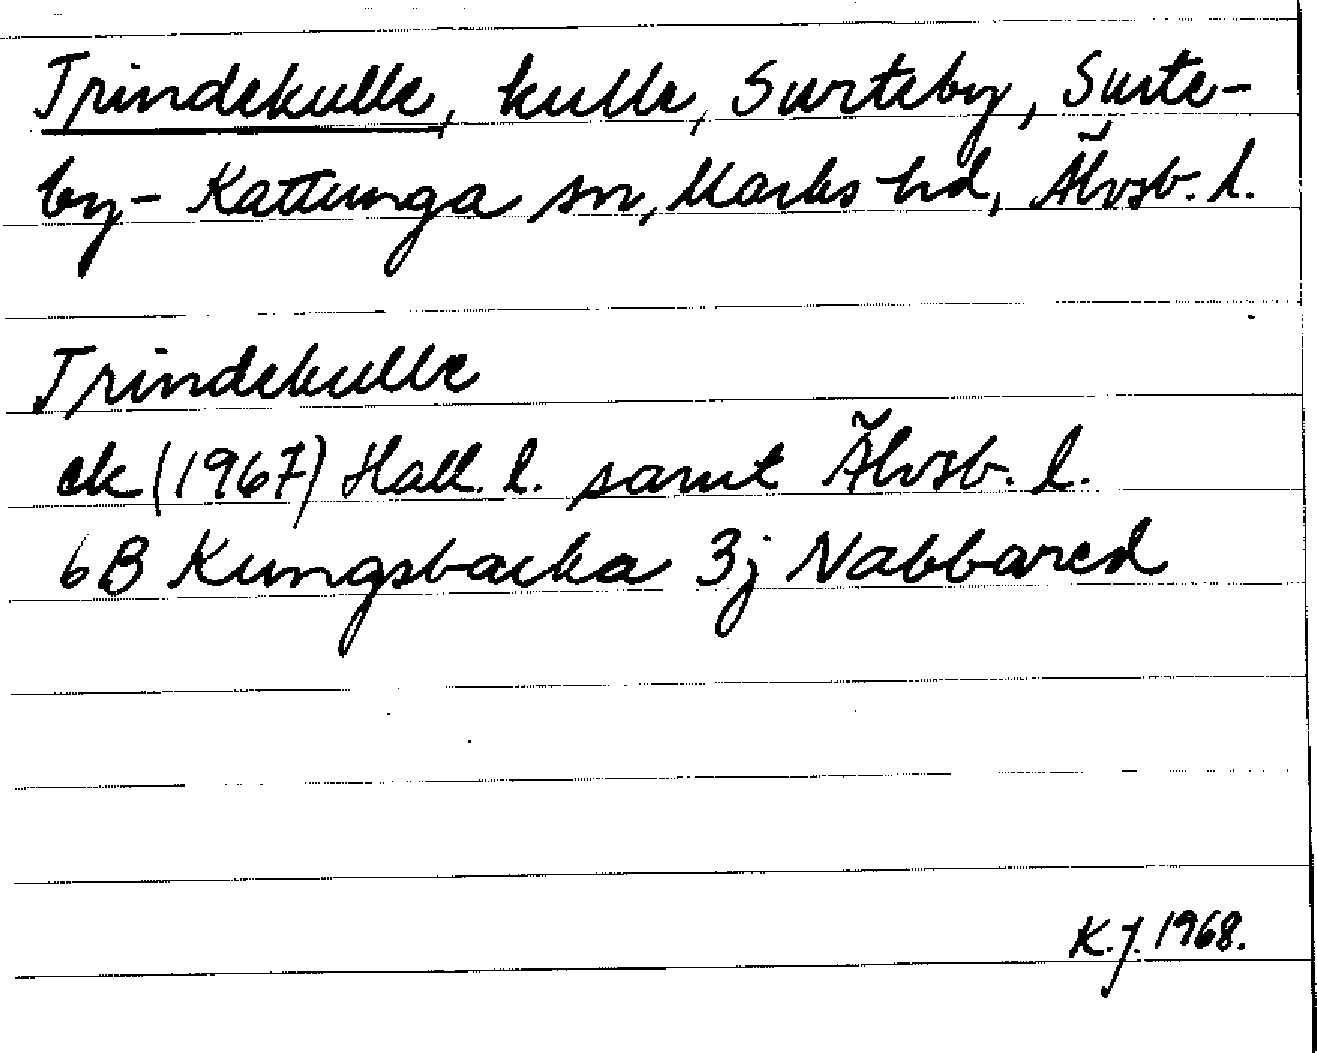 Trindekulle, kulle, Surteby, Surte-
by-Kattunga sn, Marks hd, Älvsb. l.
Trindekulle
ek (1967) Hall. l. samt Älvsb. l.
6B Kungsbacka 3j Nabbared
K.J. 1968.